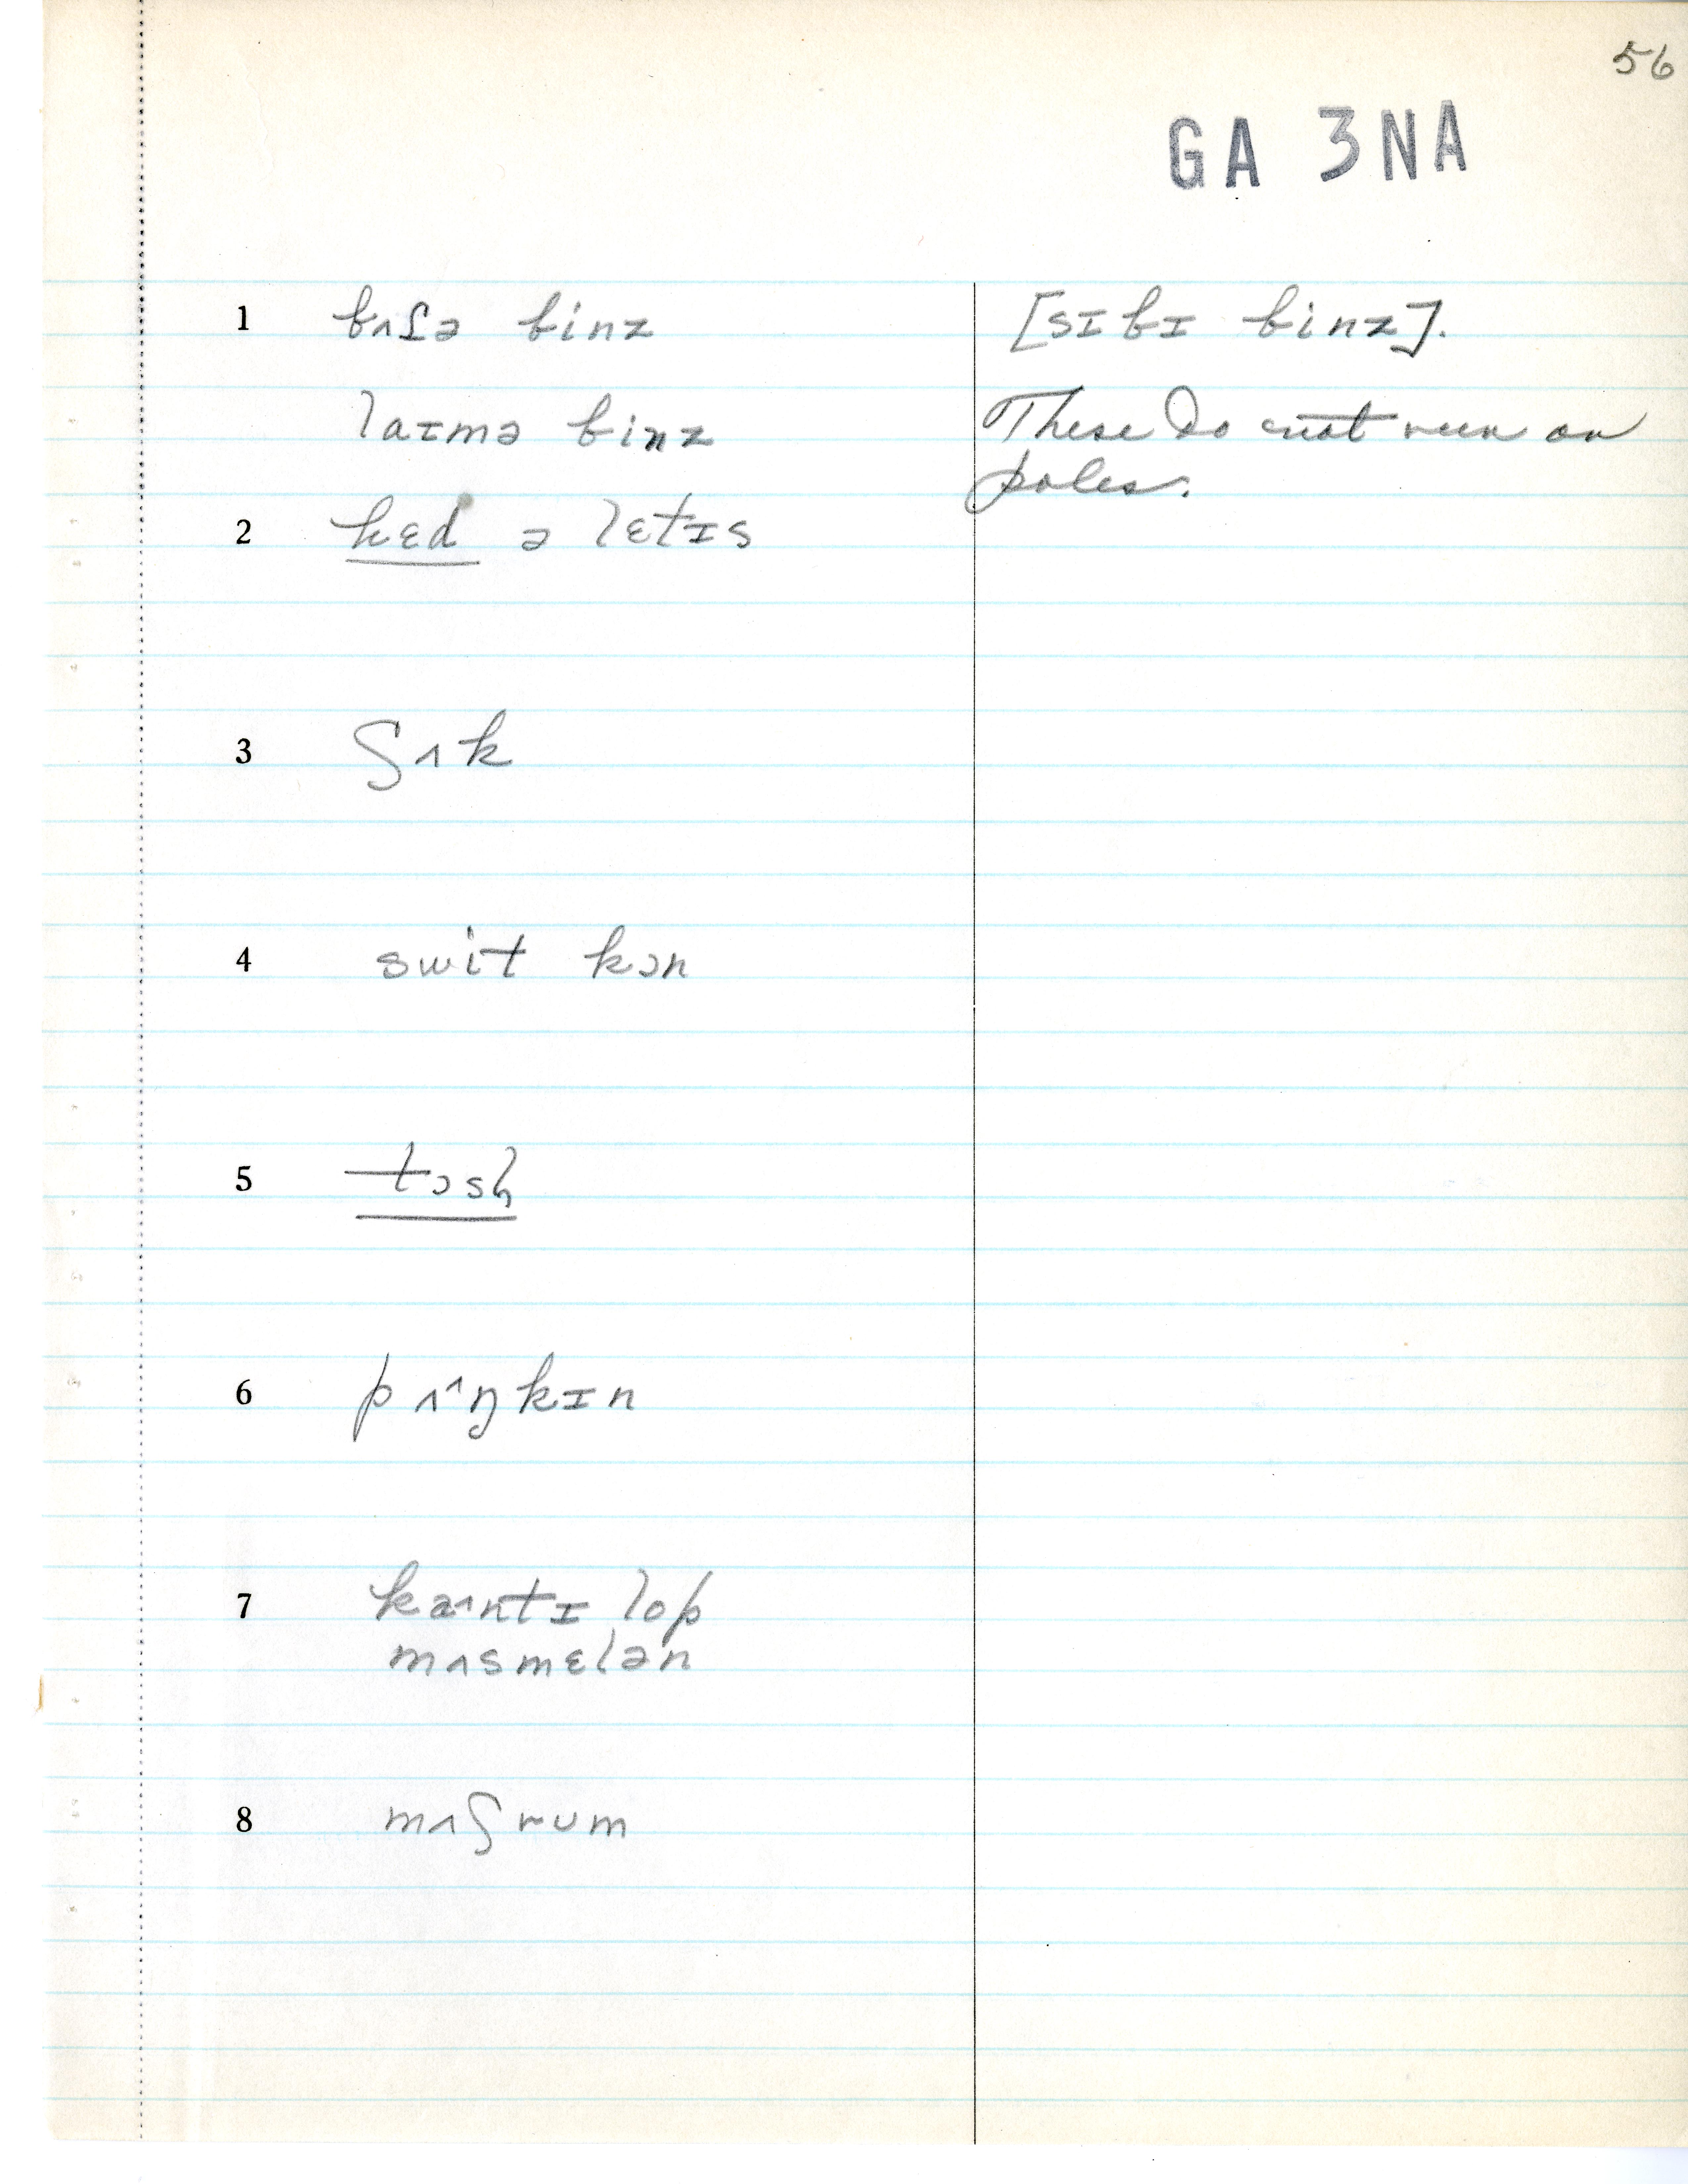 56
GA 3NA
1 bʌʃə binz [sɪbɪ binz].
laɪmə binz These do not run on
poles.
2 hɛd ə lɛtɪs
3 ʃʌk
4 swit kɔn
5 tɔsl̩
6 pʌ^ŋkɪn
7 ka^ntɪ lop
mʌsmɛlən
8 mʌʃrum